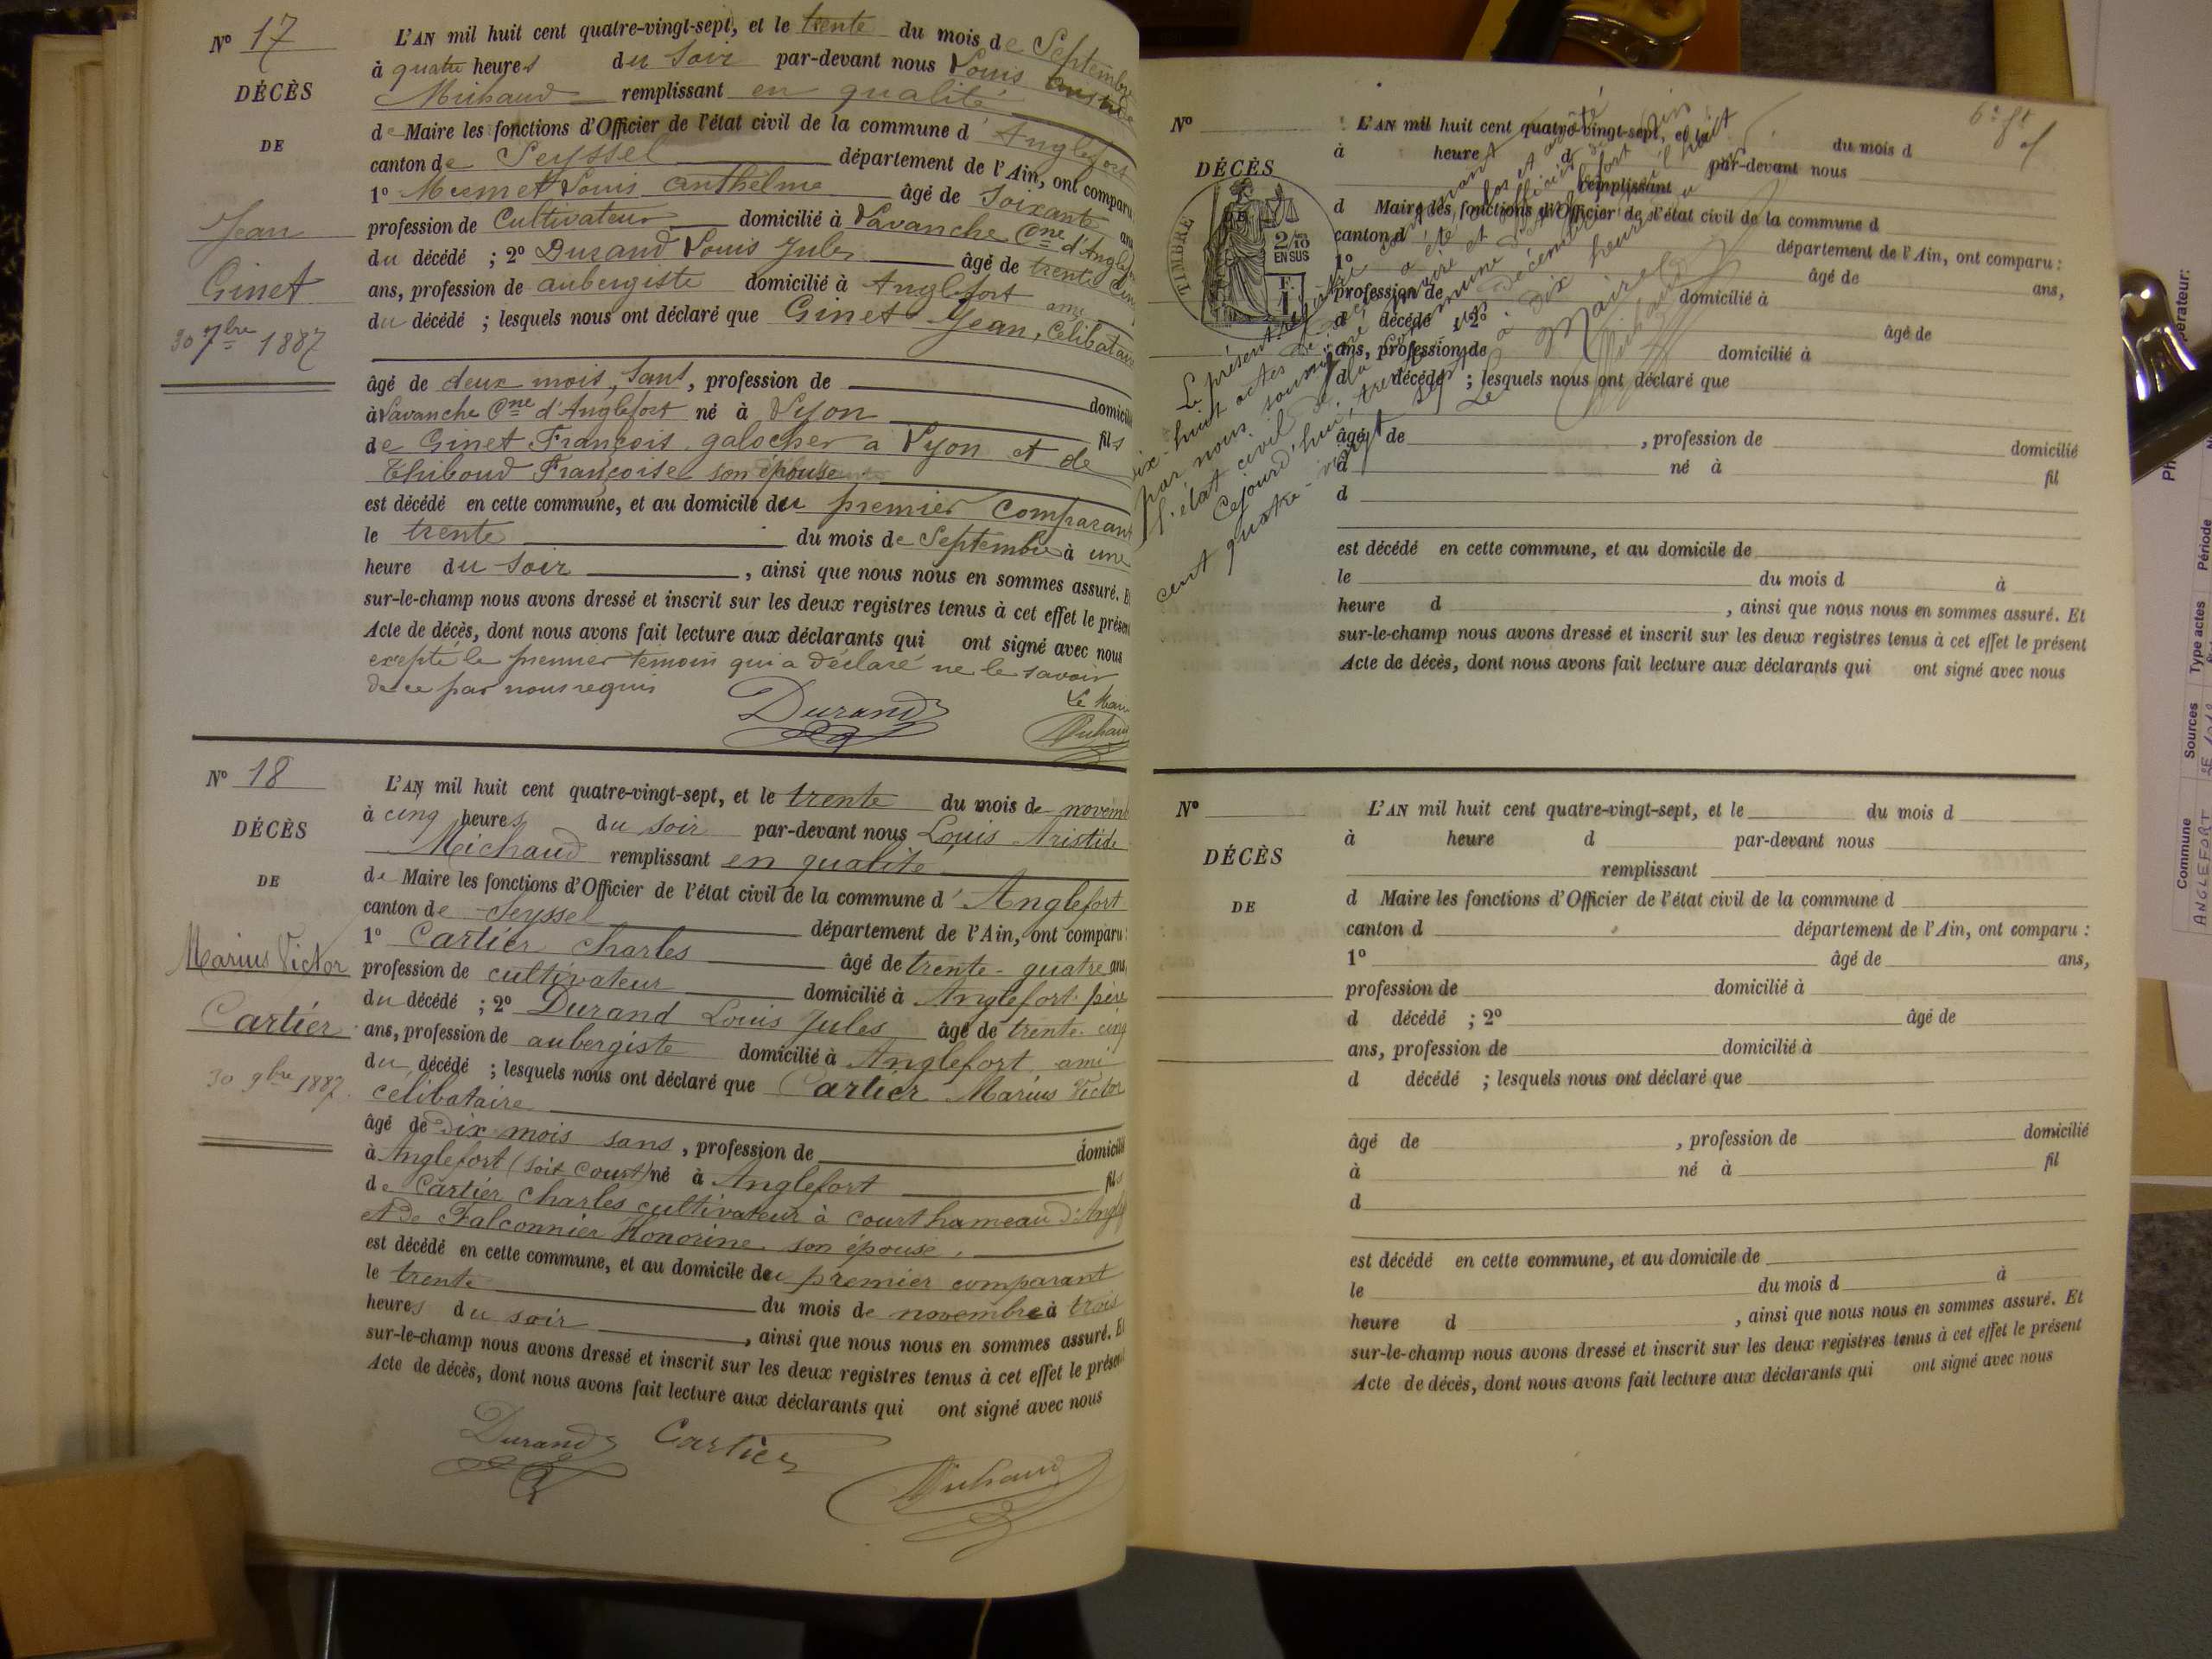 N° 17
DÉCÈS
DE
Jean
Ginet
30 7bre 1887
L'AN mil huit cent quatre-vingt-sept, et le trente du mois de Septembre
à quatre heures du Soir par-devant nous Louis Aristide
Michaud remplissant en qualité
de Maire les fonctions d'Officier de l'état civil de la commune d'Anglefort
canton de Seyssel département de l'Ain, ont comparu
1° Louis Anthelme âgé de Soixante ans
profession de Cultivateur domicilié à Lavanche Cne d'Anglefort
du décédé ; 2° Durand Louis Jules âgé de trente cinq
ans, profession de aubergiste domicilié à Anglefort ami
du décédé ; lesquels nous ont déclaré que Ginet Jean, Célibataire
âgé de deux mois, Sans, profession de domicilié
à Lavanche Cne d'Anglefort né à Lyon fils
de Ginet François galocher a Lyon et de
Thiboud Françoise son épouse
est décédé en cette commune, et au domicile du premier Comparant
le trente du mois de Septembre à une
heure du Soir, ainsi que nous nous en sommes assuré. Et
sur-le-champ nous avons dressé et inscrit sur les deux registres tenus à cet effet le présent
Acte de décès, dont nous avons fait lecture aux déclarants qui ont signé avec nous
excepté le premier temoin qui a déclaré ne le savoir
de ce par nous requis
Le Maire
Durand
Michaud
N° 18
DÉCÈS
DE
Marius Victor
Cartier
30 9bre 1887
L'AN mil huit cent quatre-vingt-sept, et le trente du mois de novembre
à cinq heures du soir par-devant nous Louis Aristide
Michaud remplissant en qualité
de Maire les fonctions d'Officier de l'état civil de la commune d'Anglefort
canton de Seyssel département de l'Ain, ont comparu :
1° Cartier Charles âgé de trente-quatre ans,
profession de cultivateur domicilié à Anglefort père
du décédé ; 2° Durand Louis Jules âgé de trente-cinq
ans, profession de aubergiste domicilié à Anglefort ami
du décédé ; lesquels nous ont déclaré que Cartier Marius Victor
célibataire
âgé de dix mois sans, profession de domicilié
à Anglefort (soit Court) né à Anglefort fils
de Cartier Charles cultivateur à court hameau d'Anglefort
et de Falconnier Honorine son épouse,
est décédé en cette commune, et au domicile du premier comparant
le trente du mois de novembre à trois
heures du soir, ainsi que nous nous en sommes assuré. Et
sur-le-champ nous avons dressé et inscrit sur les deux registres tenus à cet effet le présent
Acte de décès, dont nous avons fait lecture aux déclarants qui ont signé avec nous
Durand Cartier
Michaud
6e ft
N°
DÉCÈS
TIMBRE
2/10 EN SUS
L'AN mil huit cent quatre-vingt-sept, et le du mois d
à heure d par-devant nous
remplissant
d Maire les fonctions d'Officier de l'état civil de la commune d
canton d département de l'Ain, ont comparu :
1° âgé de ans,
profession de domicilié à
d décédé ; 2° âgé de
ans, profession de domicilié à
d décédé ; lesquels nous ont déclaré que
âgé de , profession de domicilié
à né à fil
d
est décédé en cette commune, et au domicile de
le du mois d à
heure d , ainsi que nous nous en sommes assuré. Et
sur-le-champ nous avons dressé et inscrit sur les deux registres tenus à cet effet le présent
Acte de décès, dont nous avons fait lecture aux déclarants qui ont signé avec nous
Le présent registre contenant
dix-huit actes de décès a été clos et arrêté
par nous soussigné Maire et officier de
l'état civil de la commune d'Anglefort
Cejourd'hui, trente un décembre mil huit
cent quatre-vingt sept à dix heures du
Le Maire
Michaud
N°
DÉCÈS
DE
L'AN mil huit cent quatre-vingt-sept, et le du mois d
à heure d par-devant nous
remplissant
d Maire les fonctions d'Officier de l'état civil de la commune d
canton d département de l'Ain, ont comparu :
1° âgé de ans,
profession de domicilié à
d décédé ; 2° âgé de
ans, profession de domicilié à
d décédé ; lesquels nous ont déclaré que
âgé de , profession de domicilié
à né à fil
d
est décédé en cette commune, et au domicile de
le du mois d à
heure d , ainsi que nous nous en sommes assuré. Et
sur-le-champ nous avons dressé et inscrit sur les deux registres tenus à cet effet le présent
Acte de décès, dont nous avons fait lecture aux déclarants qui ont signé avec nous
Commune Sources Type actes Période
ANGLEFORT